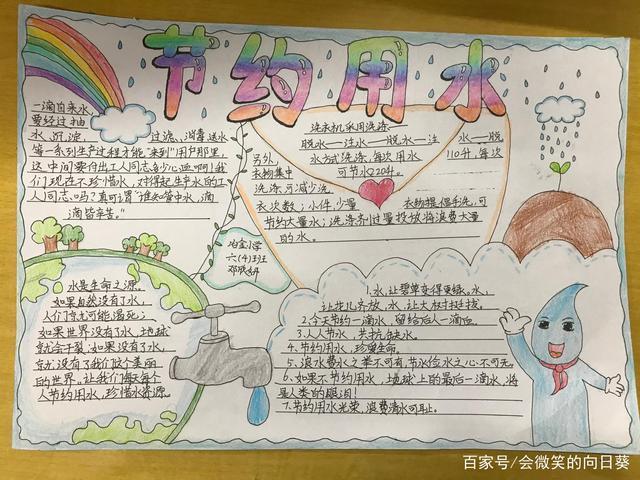 节约用水
一滴自来水
要经过抽
水、沉淀、过滤、消毒、送水
等一系列生产过程才能"来到"用户那里,
这中间要付出工人同志多少心血啊!我
们现在不珍惜水,对得起生产水的工
人同志吗?真可谓"谁知管中水,滴
滴皆辛苦。"
洗衣机采用洗涤
脱水—注水—脱水—注水—脱
水方式洗涤,每次用水110升,每次
可节水220升。
另外,
衣物集中
洗涤,可减少洗
衣次数;小件、少量衣物提倡手洗,可
节约大量水;洗涤剂过量投放将浪费大量
的水。
冶金小学
六(4)班
水是生命之源,
如果自然没有了水,
人们有可能渴死;
如果世界没有了水,地球
就会干裂;如果没有了水,
就没有了我们这个美丽
的世界。让我们每天每个
人节约用水,珍惜水资源。
1.水,让碧草变得更绿。水,
让花儿齐放,水,让大树挺拔。
2.今天节约一滴水,留给后人一滴血。
3.人人节水,共抗缺水。
4.节约用水,珍爱生命。
5.浪水费水之举不可有,节水俭水之心不可无。
6.如果不节约用水,地球上的最后一滴水,将
是人类的眼泪!
7.节约用水光荣,浪费清水可耻。
百家号/会微笑的向日葵